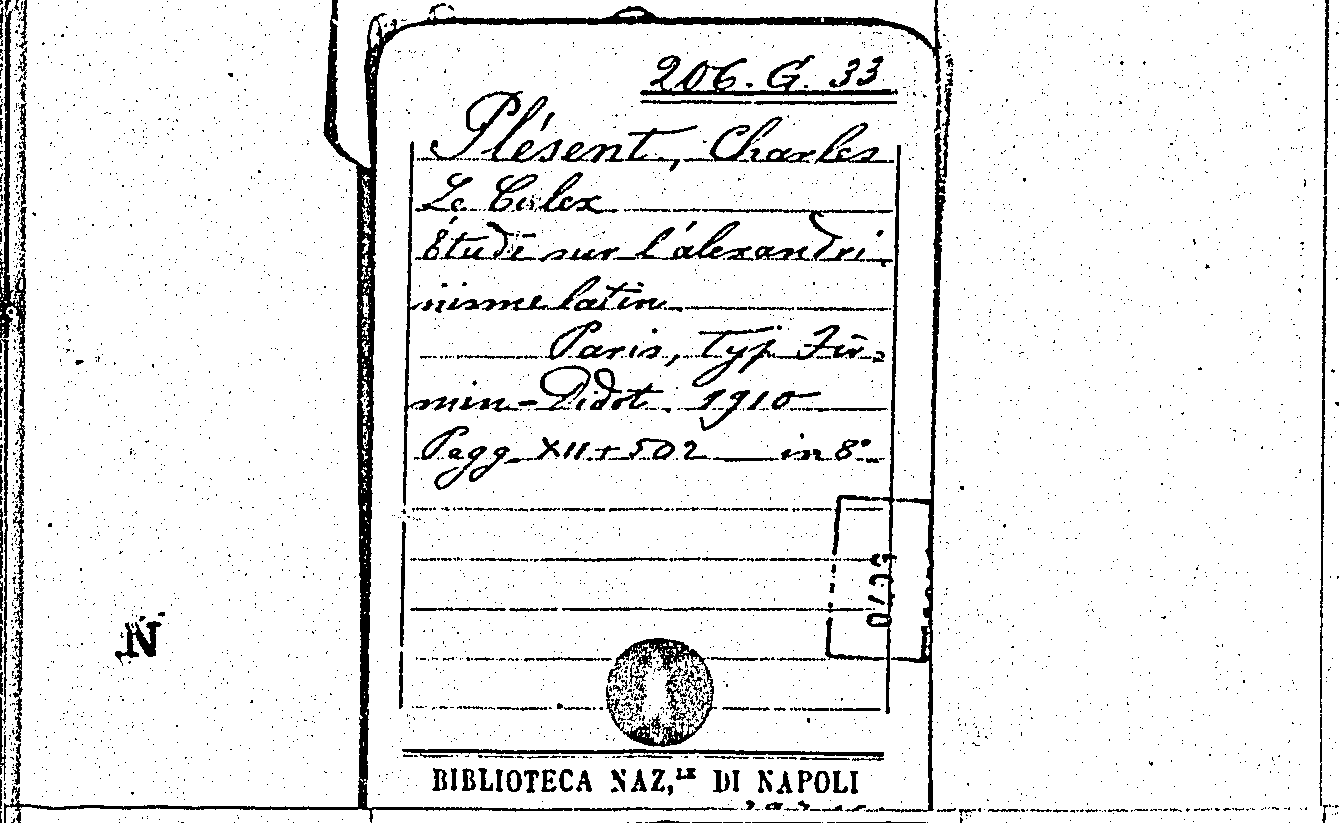 206. G. 33
Plésent, Charles
Le Culex
Étude sur l'alexandri-
nisme latin
Paris, Typ. Fir-
min-Didot. 1910
Pagg XII+502 in 8°
N
BIBLIOTECA NAZ,LE DI NAPOLI